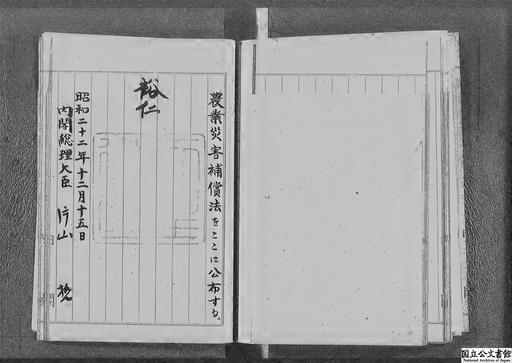 農業災害補償法をここに公布する。
裕仁
昭和二十二年十二月十五日
内閣総理大臣 片山 哲
国立公文書館
National Archives of Japan